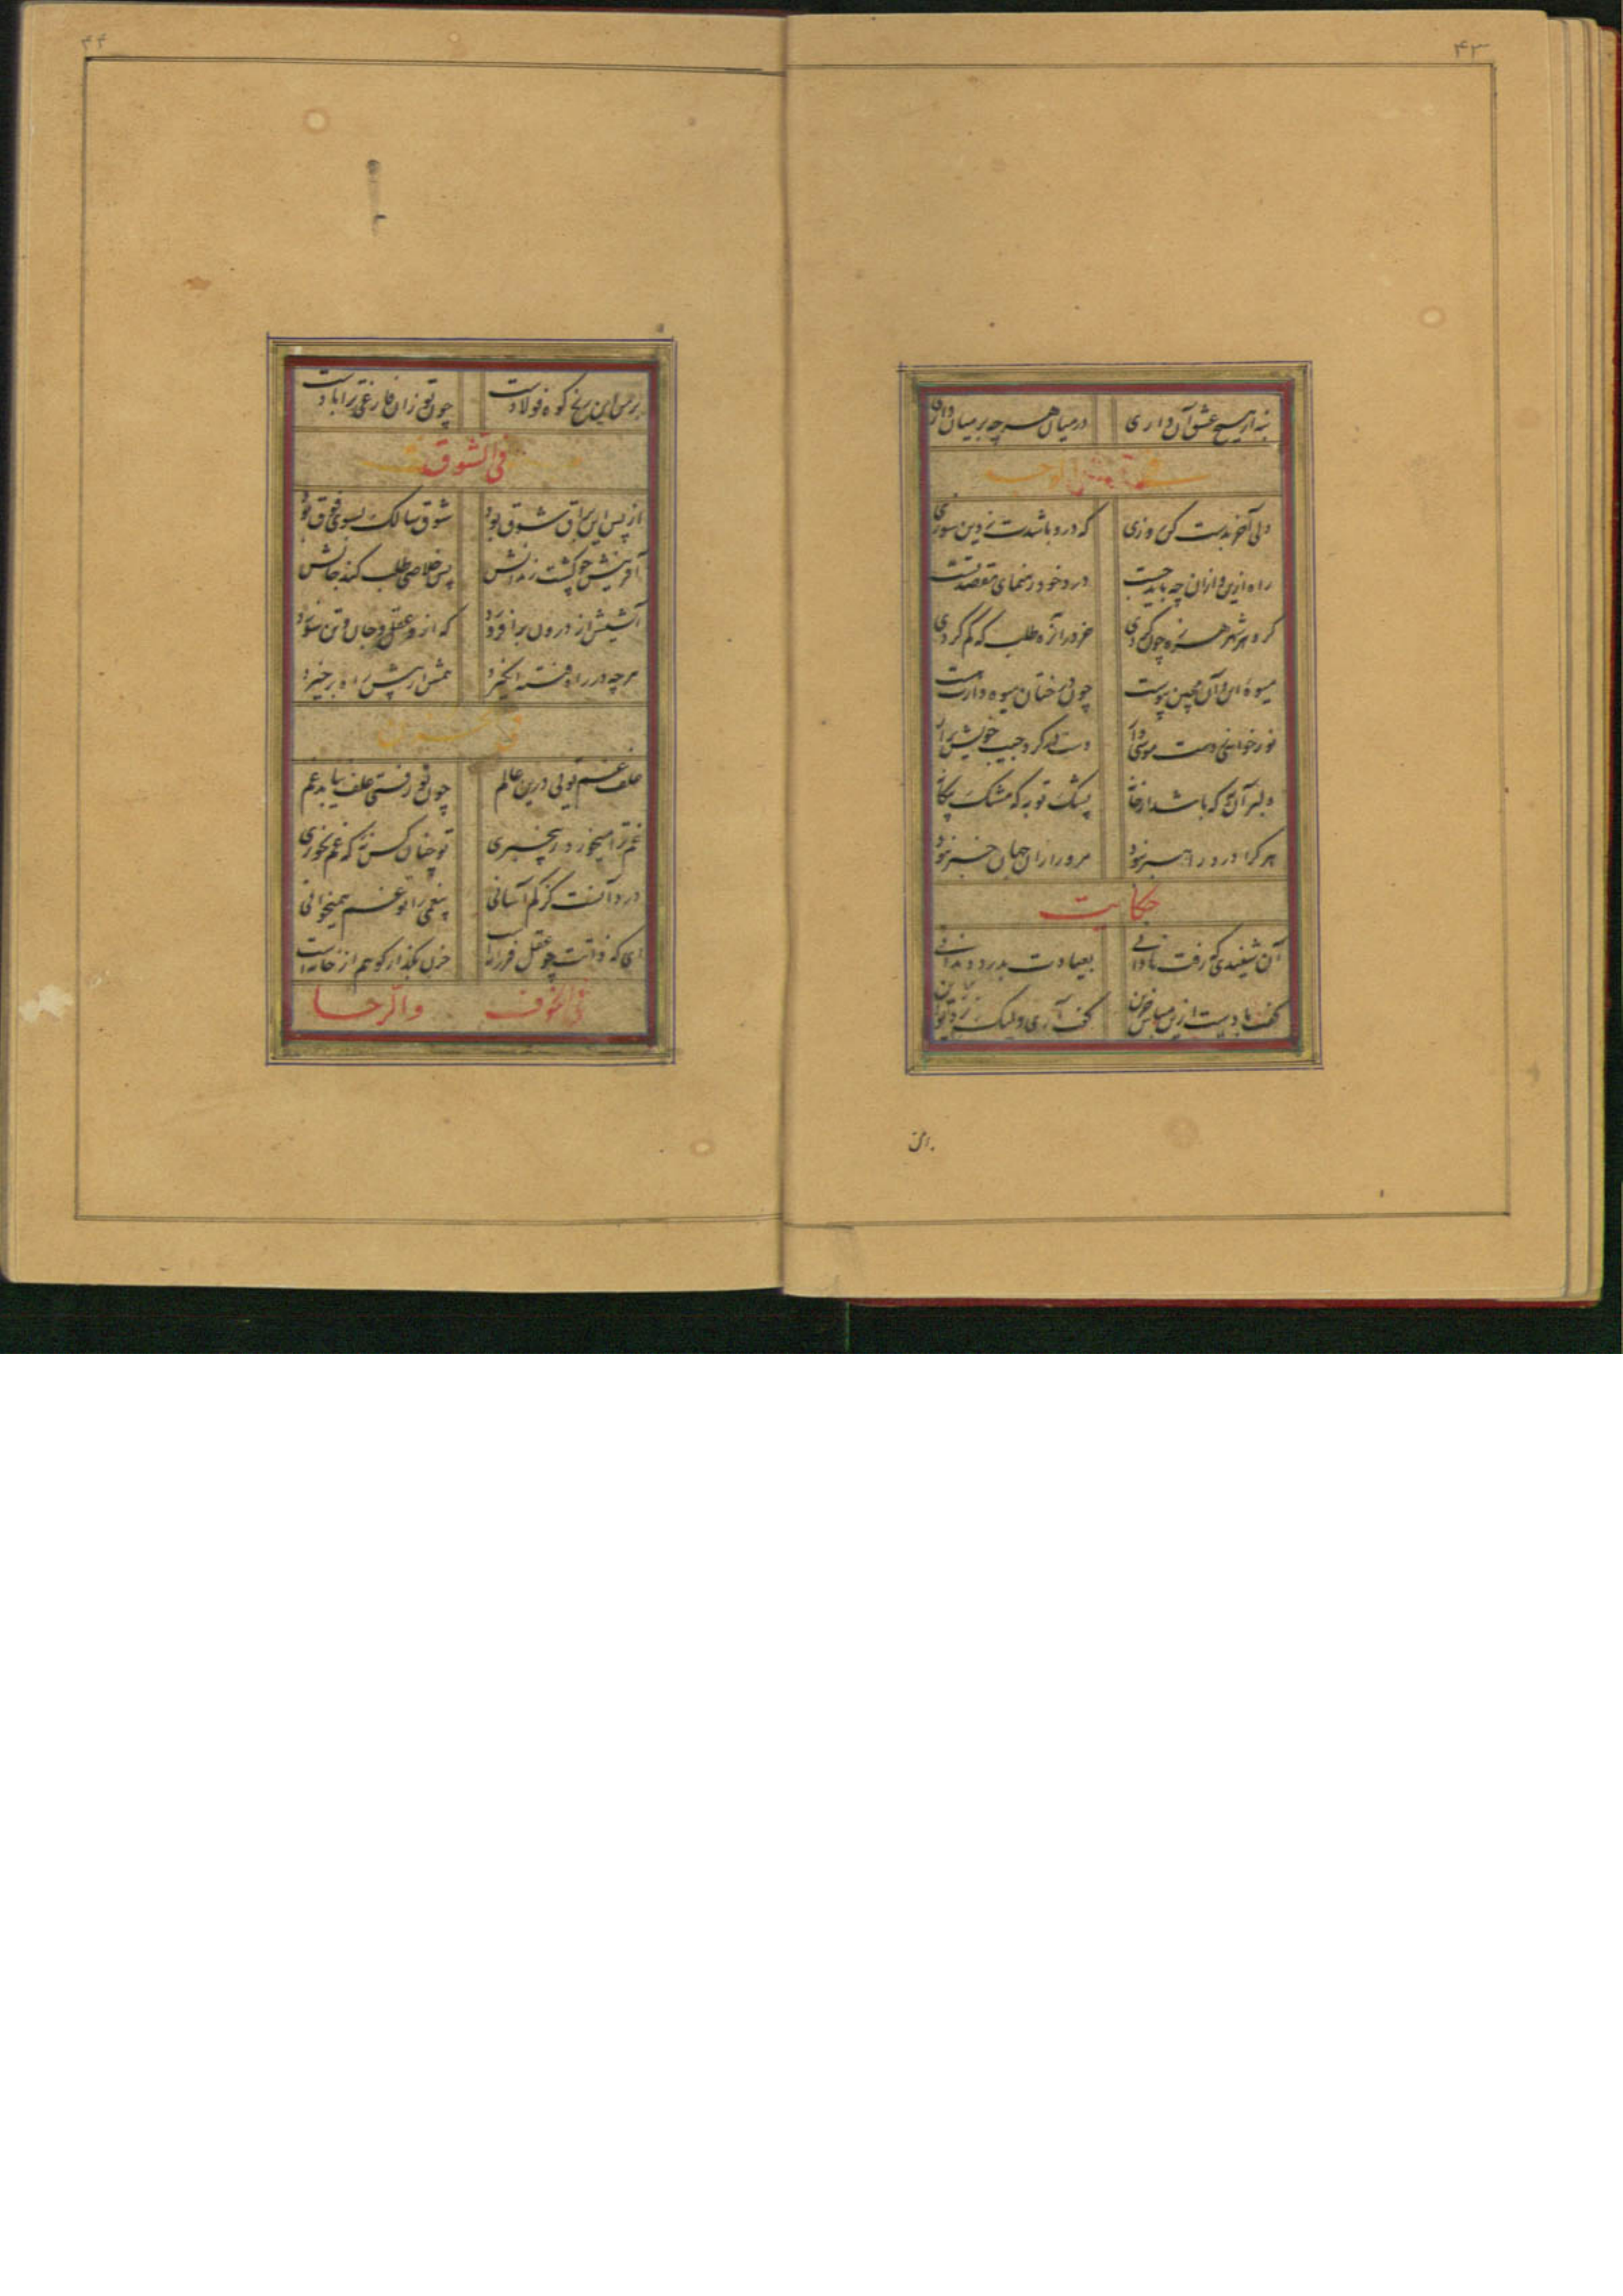 ۴۳
نه از هیچ عشق آن داری در میان هر چه بر میان داری
دلی آخر بدست کن روزی که درو باشدت ز دین سوزی
راه ازین و ازان چه باید جست درد خود رهنمای مقصد تست
کرد هر شهر هرزه چون گردی خر دران ره طلب که گم کردی
میوه این و آن مچین پیوست چون درختان میوه دارت هست
نور خواهی ز دست موسی دار دست در گرد جیب خویش برآر
دلبر آن به که باشد از خانه پشک تو به که مشک بیگانه
هر کرا درد راهبر نبود مرد را زان جهان خبر نبود
حکایت
آن شنیدی که رفت نادانی بعیادت بدرد دندانی
گفت بادست ازین مباش حزین گفت آری ولیک نزد تو این
بر من
۴۴
بر من این رنج کوه فولادست چون تو زان فارغی ترا بادست
فی الشوق
باز پس این براق شوق بود شوق سالک بسوی فوق بود
آفرینش چو گشت زندانش پس خلاصی طلب کند جانش
آتشش از درون برافروزد که ازو عقل و جان و تن سوزد
هر چه در راه فتنه انگیزد همتش از پیش راه برخیزد
علف غم تویی درین عالم چون تو رفتی علف نیابد غم
غم ترا میخورد ز بیخبری تو چنان کس نه که غم نخوری
درد آنست کز کم آسانی بیغمی را تو غم همیخوانی
ای که ذاتت چو عقل فرزانه است حزن بگذار کو هم از خانه است
فی الخوف والرجا